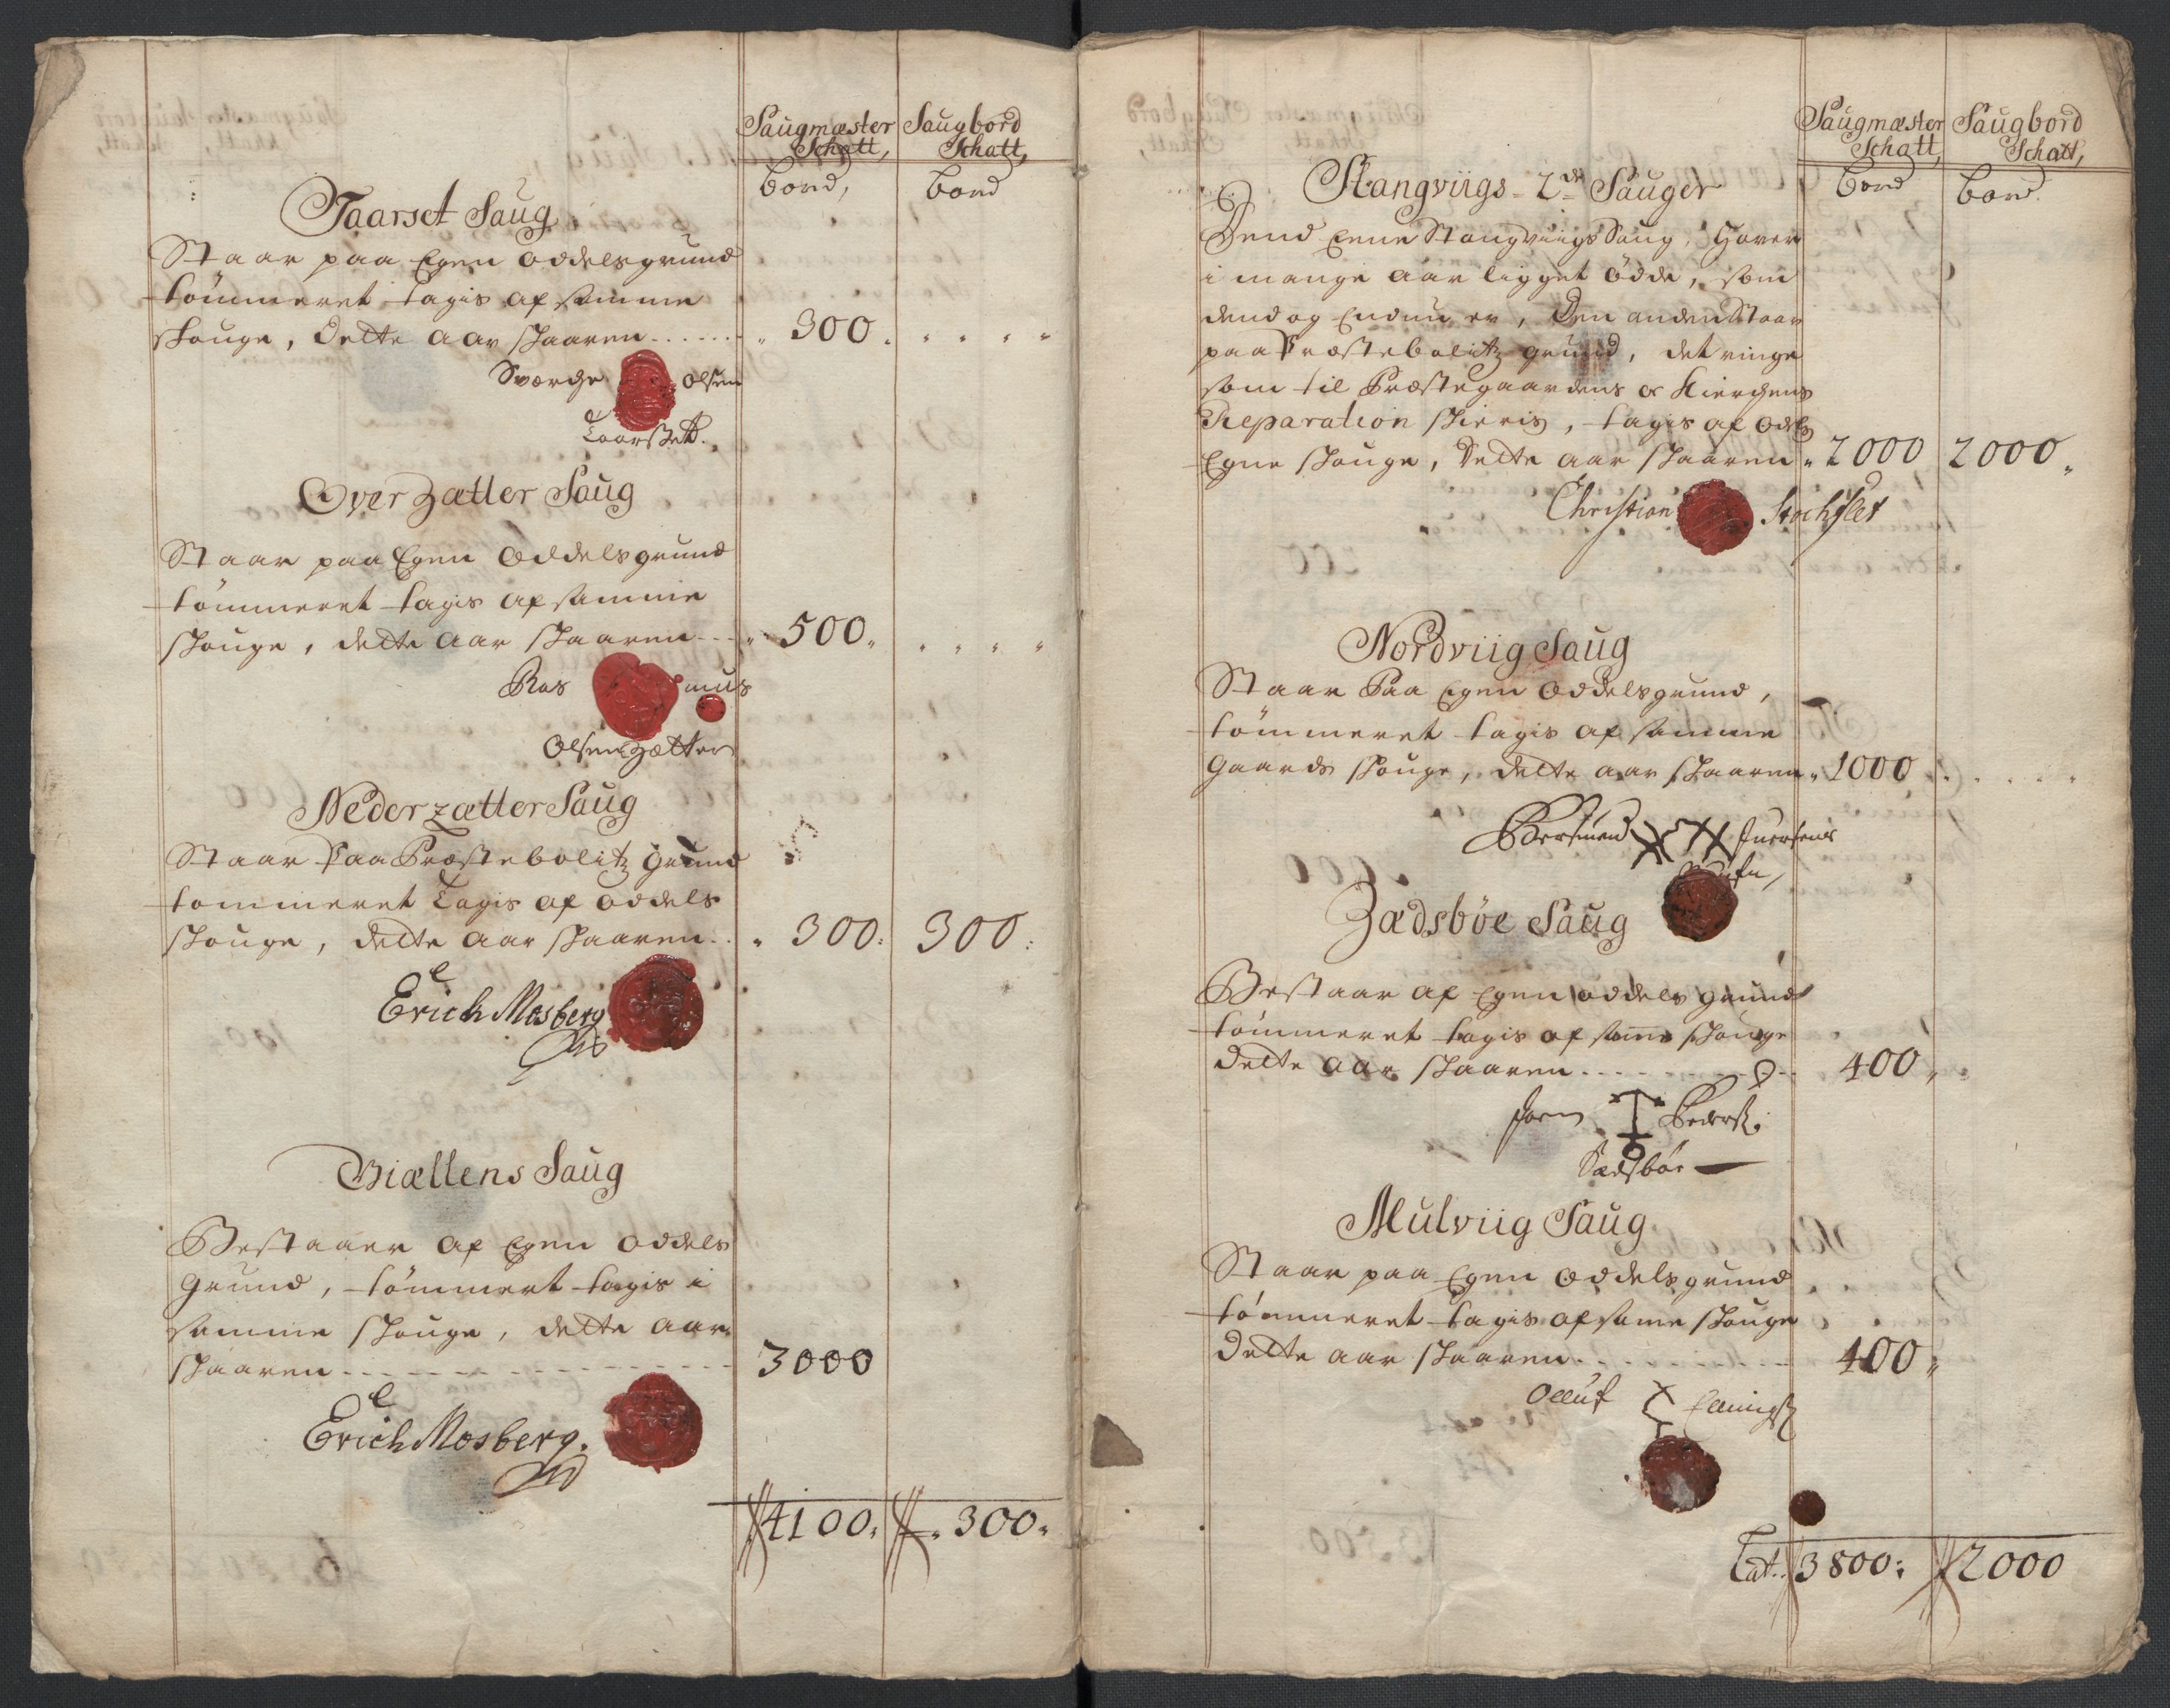 Saugmæster Saugbord
Schatt, Schatt,
bord, bord
Taarset Saug
Staar paa Egen Oddelsgrund
tömmeret tagis af samme
skouge, Dette aar skaaren . . . . . . „ 300 . „ „ „ „
Sværche Olsen
Taarset.
Over Zætter Saug
Staar paa Egen Oddelsgrund
tömmeret tagis af samme
skouge, dette aar skaaren - - - „ 500 „ „ „ „ „
Ras mus
Olsen Zætter
Neder zætter Saug
Staar Paa Præstebolitz grund
tommeret Tagis af oddels
skouge, dette aar skaaren . . „ 300: 300:
Erich Mosberg
Biællens Saug
Bestaaer af Egen oddels
Grund, tömmert tagis i
samme skouge, dette aar
skaaren - - - - - - - - - - - 3000
Erich Mosberg.
4100, „ 300 „
Saugmæster Saugbord
Schatt, Schatt,
bord bord.
Stangviigs - 2de Sauger
Dend Eene Stangviigs Saug, Haver
i mange aar ligget ödde, som
dend og Endnu er, Den anden Staar
paa Præstebolitz grund, det ringe
som til Præstegaardens & Kierchens
Reparation skieris, tagis af odels
Egne skouge, Dette aar skaaren „ 2000 2000 „
Christian Stochflet
Nordviig Saug
Staar Paa Egen Oddelsgrund,
tömmeret tagis af samme
Gaards skouge, dette aar skaaren „ 1000 . . . . .
Iversens
Zædsböe Saug
Bestaar af Egen oddels grund
tömmeret tagis af samme skouge
dette aar skaaren - - - - - - 400 „
Joen Peders:
Sædsböe
Mulviig Saug
Staar paa Egen Oddelsgrund
tömmeret tagis af samme skouge
Dette aar skaaren . . . . . . 400 „
Olluf Ellings
Lat: 3800: 2000